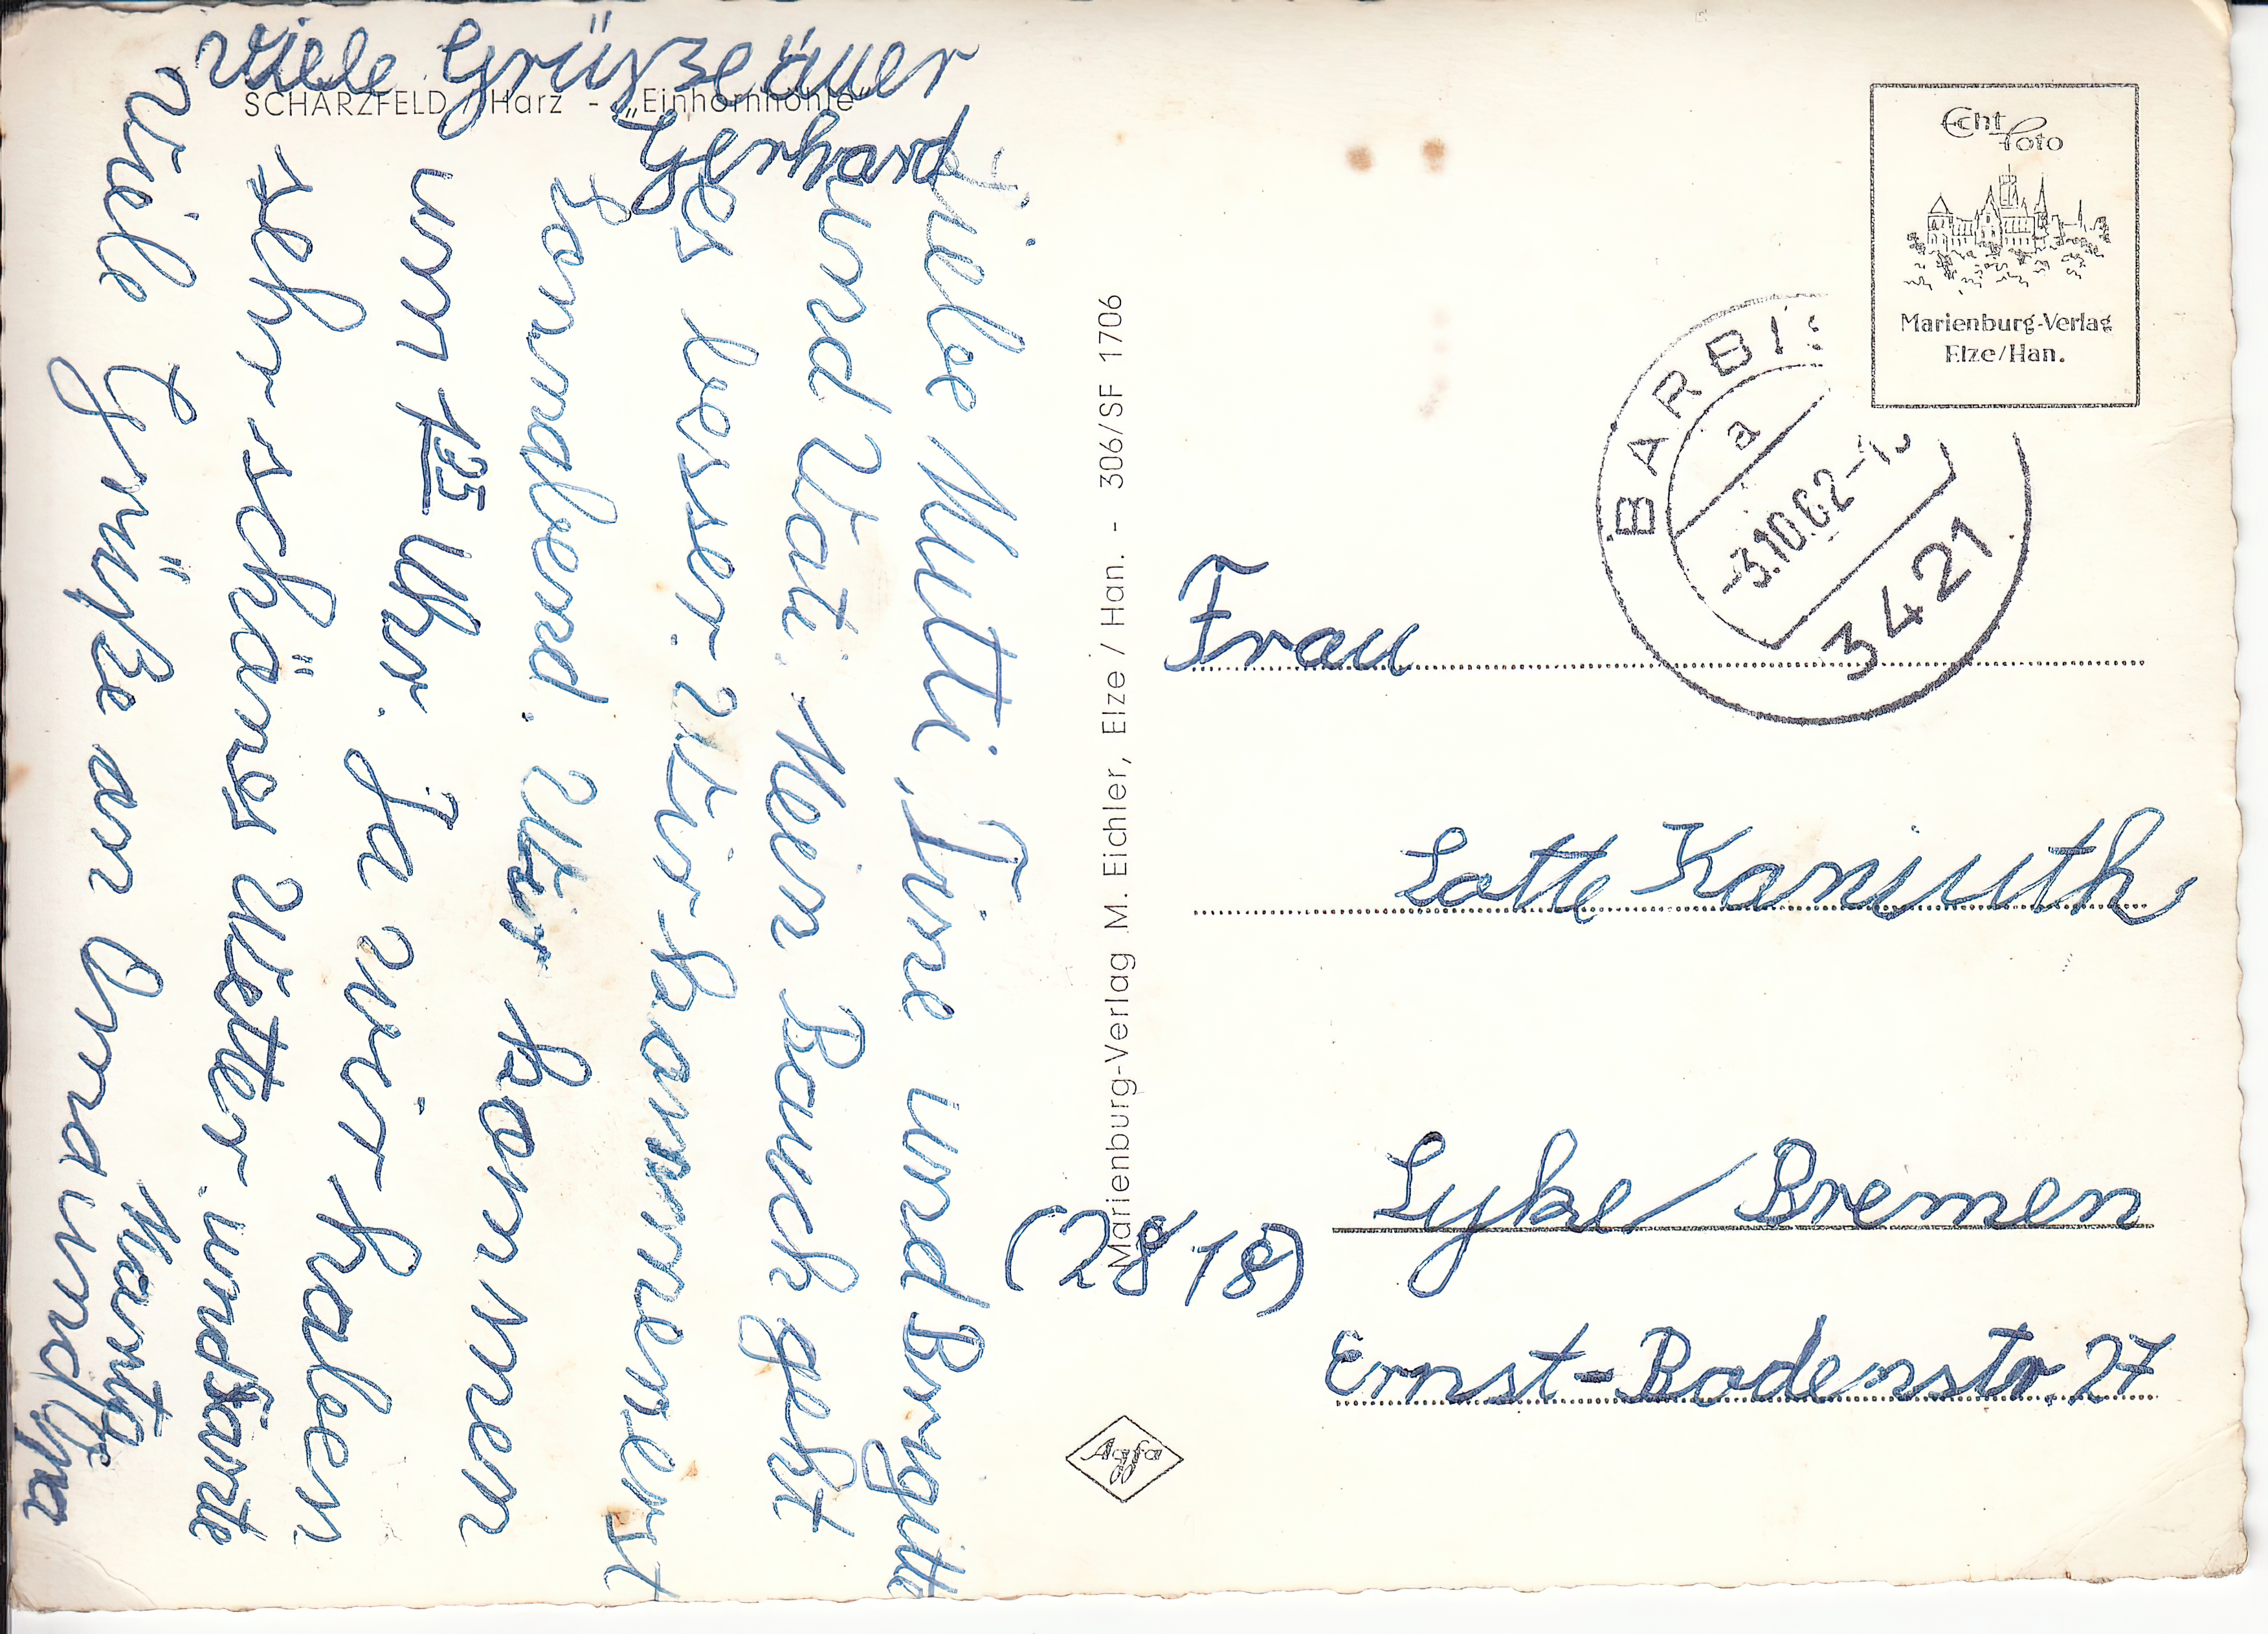 viele Grüsze äuer
Gerhard
SCHARZFELD / Harz - „Einhornhöhle"
Liebe Mutti, Tine und Brigitte
und Vati. Mein Bauch geht
es besser. Wir kommenerst
Sonnabend. Wir kommen
um 1³⁵ Uhr. Ja wir haben
sehr schönes Wetter. und
Viele Grüße an Oma und Opa
Marita
Marienburg-Verlag M. Eichler, Elze / Han. - 306/SF 1706
Echt Foto
Marienburg-Verlag
Elze/Han.
BARBI
a
-3.10.62-1
3421
Frau
Lotte Kaniuth
(2818) Syke / Bremen
Ernst-Bodenstr. 27
Agfa